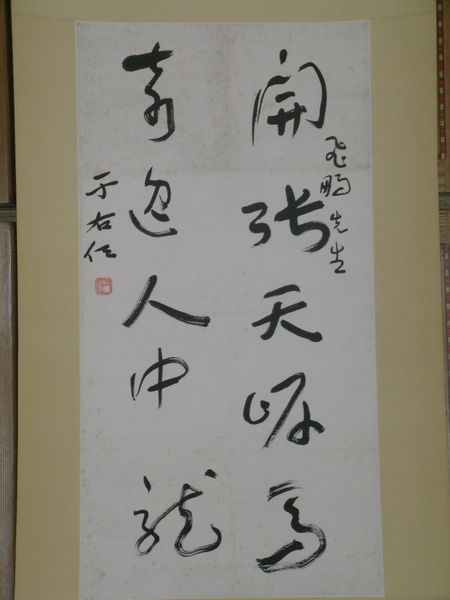 飛鵬先生
開張天岸馬
奇逸人中龍
于右任